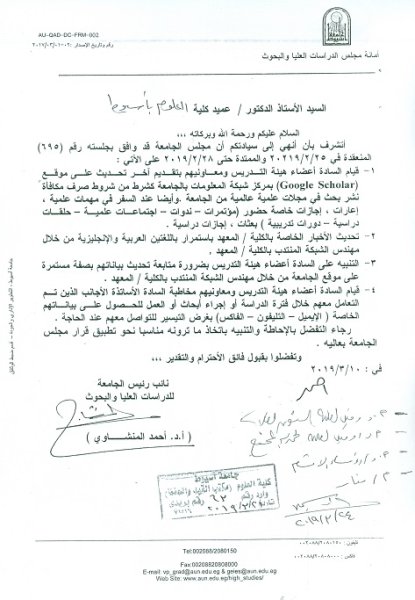 AU-QAD-DC-FRM-002
أمانة مجلس الدراسات العليا والبحوث
السيد الأستاذ الدكتور / عميد كلية العلوم بأسيوط
السلام عليكم ورحمة الله وبركاته ،،،
أتشرف بأن أنهي إلى سيادتكم أن مجلس الجامعة قد وافق بجلسته رقم (٦٩٥)
المنعقدة في ٢٠٢١٩/٢/٢٥ والممتدة حتى ٢٠١٩/٢/٢٨ على الآتي :
١- قيام السادة أعضاء هيئة التدريس ومعاونيهم بتقديم آخر تحديث على موقع
(Google Scholar) بمركز شبكة المعلومات بالجامعة كشرط من شروط صرف مكافأة
نشر بحث في مجلات علمية عالمية من الجامعة. وأيضا عند السفر في مهمات علمية ،
إعارات ، إجازات خاصة حضور (مؤتمرات - ندوات - اجتماعات علمية - حلقات
دراسية - دورات تدريبية ) بعثات ، إجازات دراسية .
٢- تحديث الأخبار الخاصة بالكلية / المعهد باستمرار باللغتين العربية والإنجليزية من خلال
مهندس الشبكة المنتدب بالكلية / المعهد.
٣- التنبيه على السادة أعضاء هيئة التدريس بضرورة متابعة تحديث بياناتهم بصفة مستمرة
على موقع الجامعة من خلال مهندس الشبكة المنتدب بالكلية / المعهد .
٤- قيام السادة أعضاء هيئة التدريس ومعاونيهم مخاطبة السادة الأساتذة الأجانب الذين تم
التعامل معهم خلال فترة الدراسة أو إجراء أبحاث أو العمل للحصول على بياناتهم
الخاصة ( الإيميل - التليفون - الفاكس) بغرض التيسير للتواصل معهم عند الحاجة .
رجاء التفضل بالإحاطة والتنبيه باتخاذ ما ترونه مناسبا نحو تطبيق قرار مجلس
الجامعة بعاليه .
وتفضلوا بقبول فائق الأحترام والتقدير ،،،
في : ٢٠١٩/٣/١٠
نائب رئيس الجامعة
للدراسات العليا والبحوث
( أ.د. أحمد المنشاوي )
جامعة أسيوط
كلية العلوم
Tel:002088/2080150
Fax:00208820808000
E-mail: vp_grad@aun.edu.eg & geies@aun.edu.eg
Web Site: www.aun.edu.eg/high_studies/